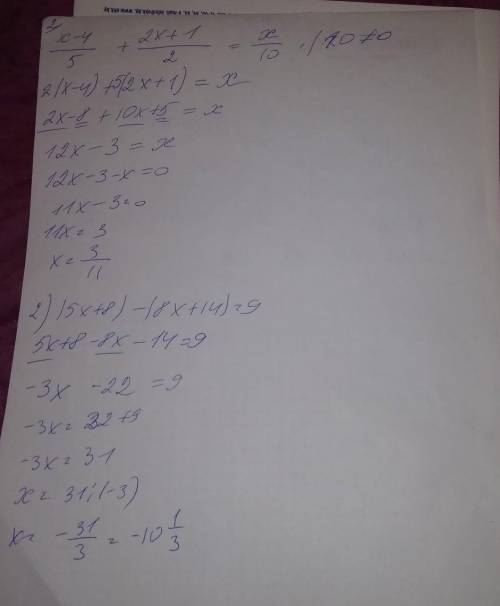 1)
x-4/5 + 2x+1/2 = x/10 · | 10 ≠ 0
2(x-4) + 5(2x+1) = x
2x-8 + 10x+5 = x
12x - 3 = x
12x - 3 - x = 0
11x - 3 = 0
11x = 3
x = 3/11
2) (5x+8) - (8x+14) = 9
5x+8 - 8x - 14 = 9
-3x -22 = 9
-3x = 22 + 9
-3x = 31
x = 31:(-3)
x = -31/3 = -10 1/3